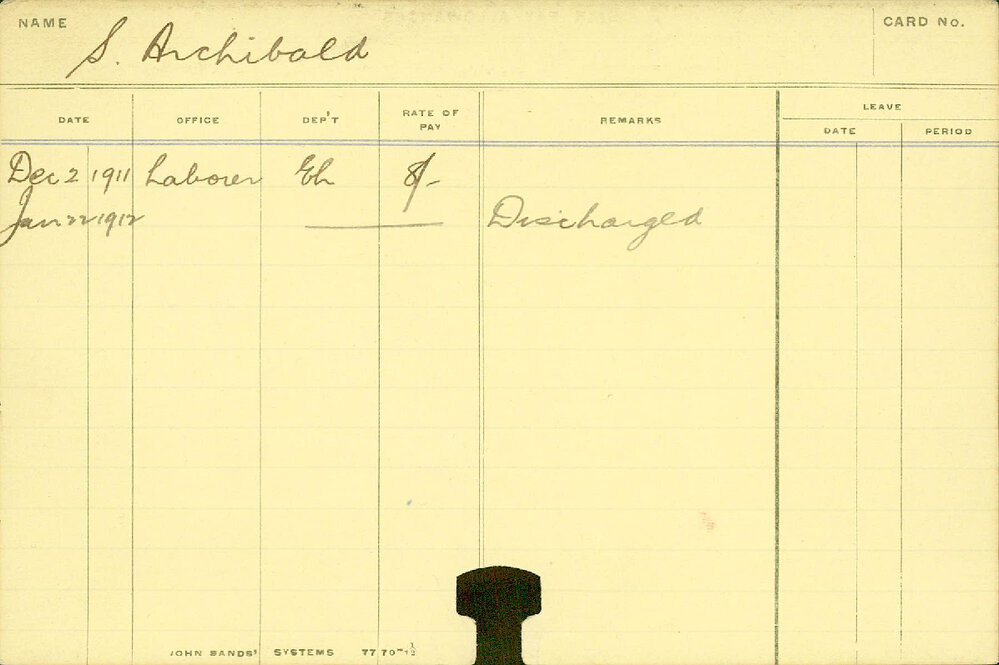 NAME
S. Archibald
CARD No.
DATE OFFICE DEP'T RATE OF PAY REMARKS LEAVE
DATE PERIOD
Dec 2 1911 Laborer Eh 8/-
Jan 22 1912 Discharged
JOHN SANDS' SYSTEMS 77 70